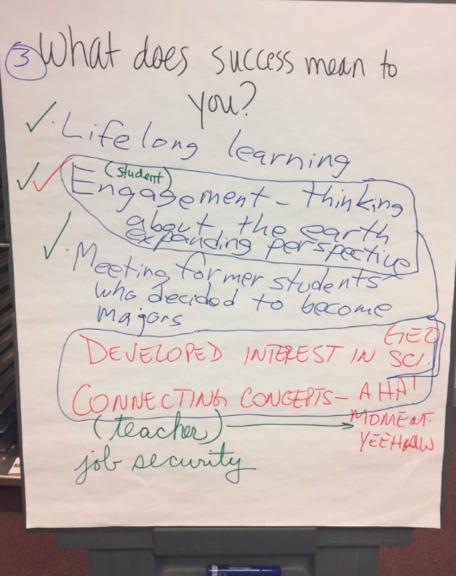 3 What does success mean to
you?
✓ · Lifelong learning
(student)
✓✓ Engagement - thinking
about the earth
expanding perspective
✓ · Meeting former students
who decided to become
majors
GEO
DEVELOPED INTEREST IN SCI.
CONNECTING CONCEPTS - AHA!
MOMENT.
(teacher) →
YEEHAW
job security